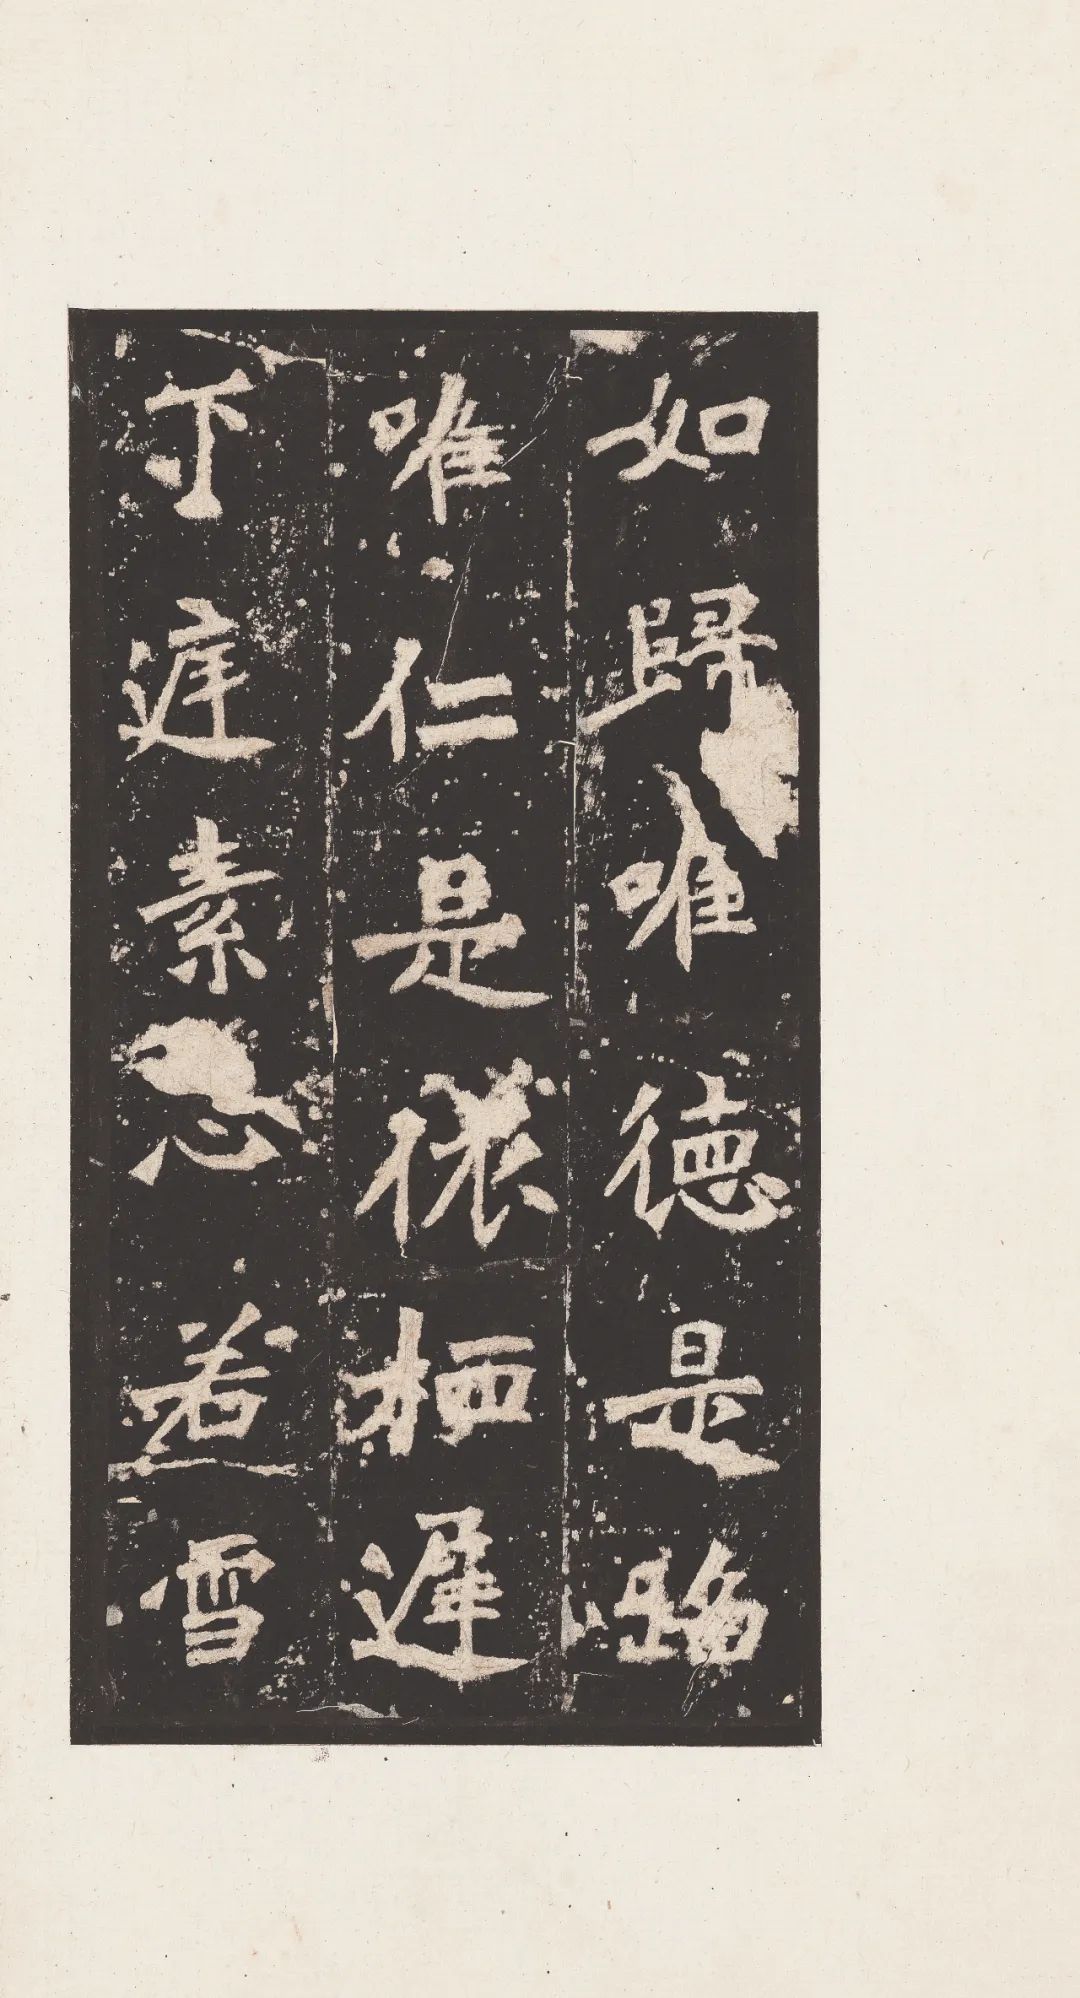 如歸唯德是蹈
唯仁是依栖遲
下庭素心若雪